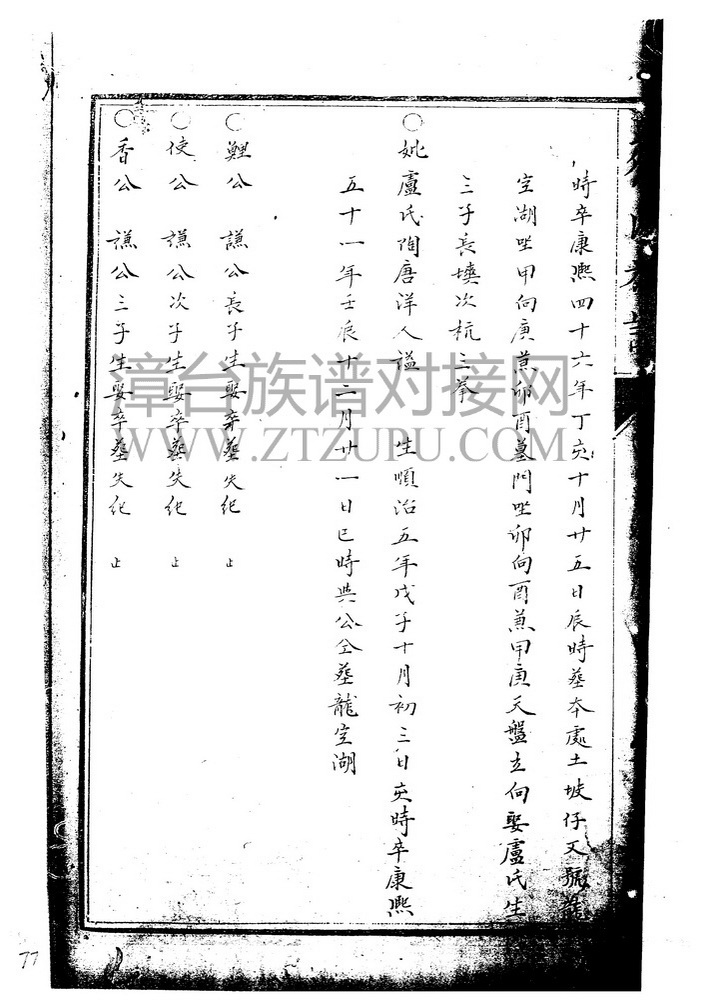 時卒康熙四十六年丁亥十月廿五日辰時塟本處土坡仔又號龍
空湖坐甲向庚兼卯酉墓門坐卯向酉兼甲庚天盤立向娶盧氏生
三子長墳次杭三拳
〇妣盧氏陶唐洋人謚 生順治五年戊子十月初三日亥時卒康熙
五十一年壬辰十二月廿一日巳時與公仝塟龍空湖
〇鯉公 謙公長子生娶卒塟失紀 止
〇使公 謙公次子生娶卒塟失紀 止
〇香公 謙公三子生娶卒塟失紀 止
漳台族谱对接网
WWW.ZTZUPU.COM
77